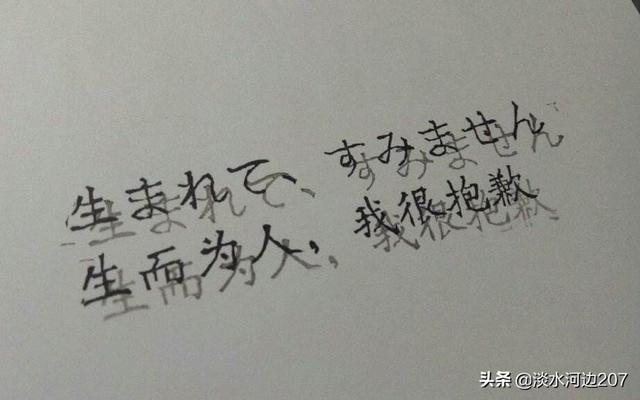 生まれて、すみません
生而为人，我很抱歉
头条 @淡水河边207